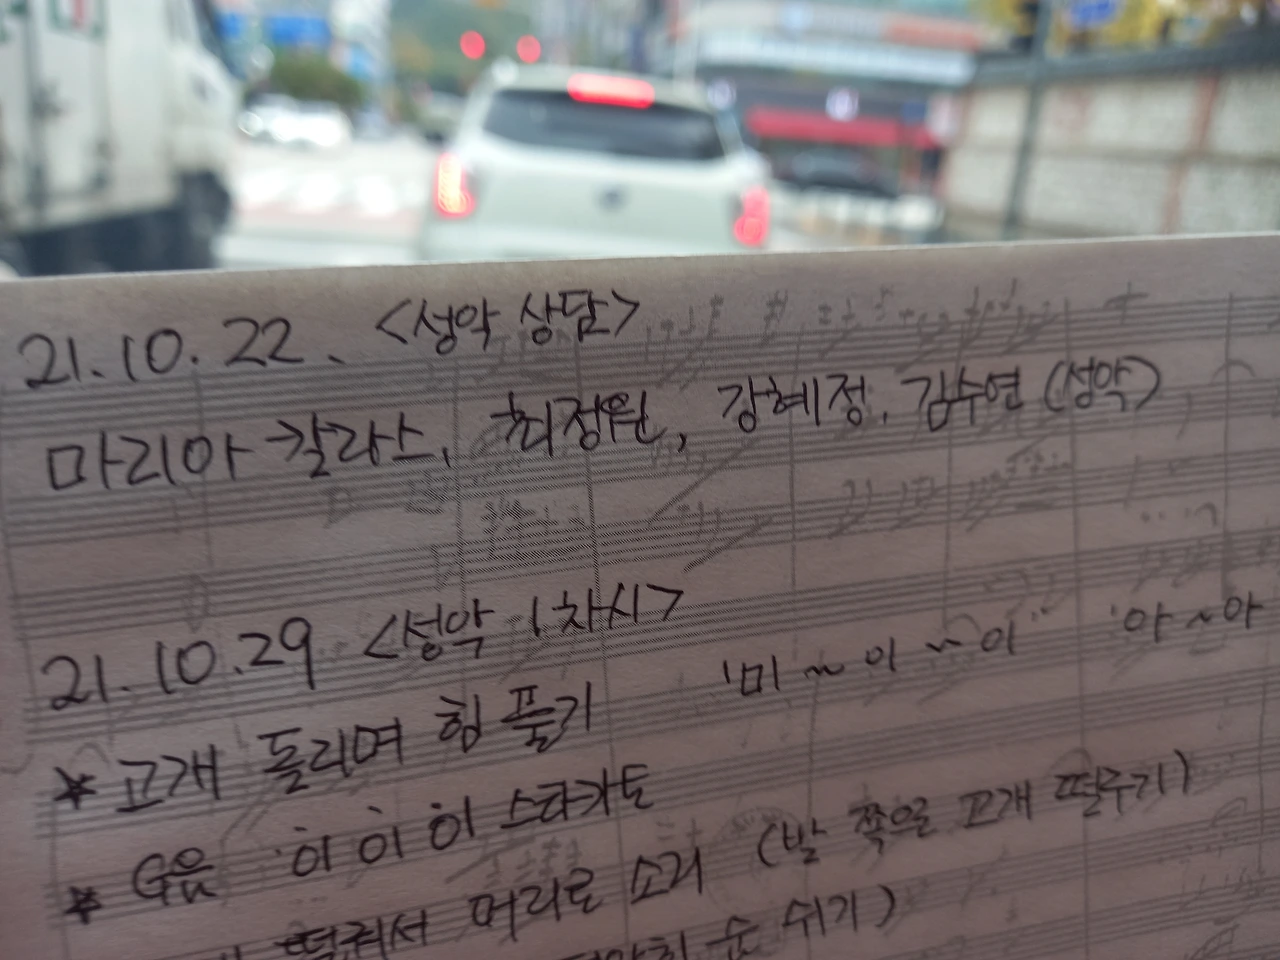 21.10.22. <성악 상담>
마리아 칼라스, 최정원, 강혜정, 김수연 (성악)
21.10.29 <성악 1차시>
* 고개 돌리며 힘 풀기 '미~이~이' '아~아
* G음 이이이 스타카토
떨궈서 머리로 소리 (발 쪽으로 고개 떨구기)
숨 쉬기)